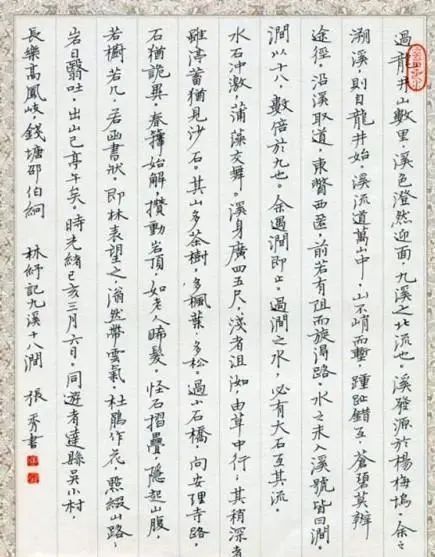 過龍井山數里，溪色澄然迎面，九溪之北流也。溪發源於楊梅塢。余之
溯溪，則自龍井始。溪流道萬山中，山不峭而塹，踵趾錯互，蒼碧莫辨
途徑。沿溪取道，東瞥西匿，前若有阻而旋得路。水之未入溪號皆曰澗，
澗以十八，數倍於九也。余遇澗即止。過澗之水，必有大石亙其流。
水石冲激，蒲藻交舞。溪身廣四五尺，淺者沮洳，由草中行，其稍深者
雖渟蓄猶見沙石。其山多茶樹，多楓葉，多松。過小石橋，向安理寺路，
石猶詭異。春籜始解，攢動岩頂，如老人晞髮。怪石摺疊，隱起山腹，
若櫥若几，若函書狀。即林表望之，滃然帶雲氣。杜鵑作花，點綴山路。
岩日翳吐，出山已亭午矣。時光緒己亥三月六日，同遊者達縣吳小村，
長樂高鳳岐，錢塘邵伯絅 林紓記九溪十八澗 張秀書